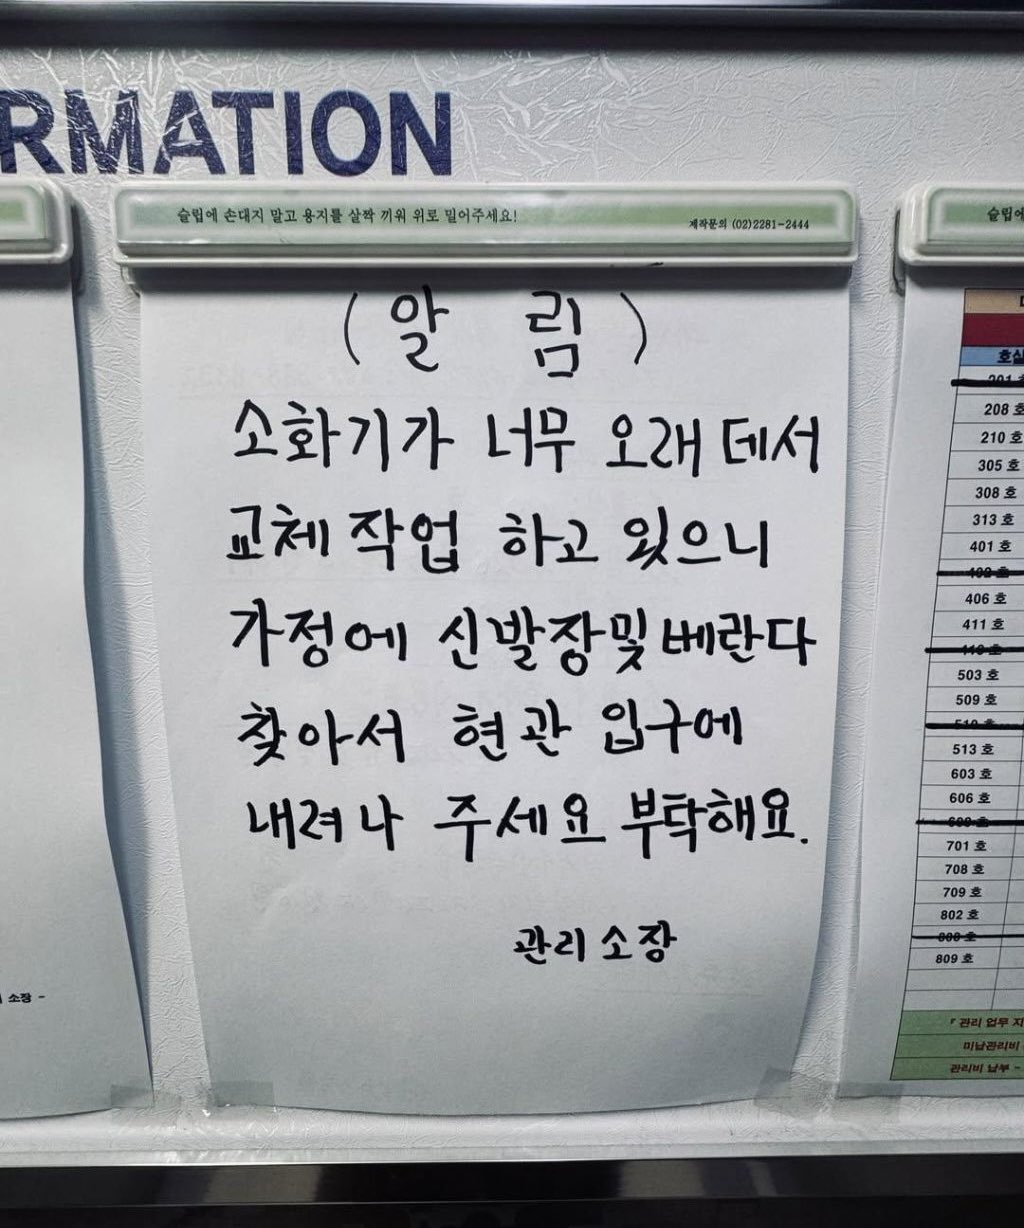 RMATION
슬립에 손대지 말고 용지를 살짝 끼워 위로 밀어주세요!
제작문의 (02)2281-2444
슬립에
(알 림)
소화기가 너무 오래 데서
교체 작업 하고 있으니
가정에 신발장및 베란다
찾아서 현관 입구에
내려나 주세요 부탁해요.
관리 소장
소장 -
호실
201
208 호
210 호
305 호
308 호
313 호
401 호
402 호
406 호
411 호
503 호
509 호
510 호
513 호
603 호
606 호
701 호
708 호
709 호
802 호
808 호
809 호
「관리 업무 지
미납관리비
관리비 납부 -